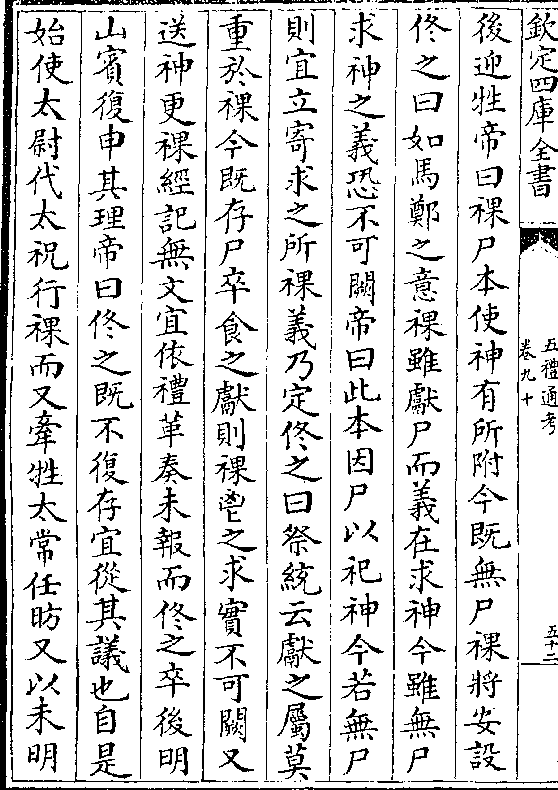 欽定四庫全書
五禮通考
卷九十
五十二
後迎牲帝曰祼尸本使神有所附今既無尸祼將安設
佟之曰如馬鄭之意祼雖獻尸而義在求神今雖無尸
求神之義恐不可闕帝曰此本因尸以祀神今若無尸
則宜立寄求之所祼義乃定佟之曰祭統云獻之屬莫
重於祼今既存尸卒食之獻則祼鬯之求實不可闕又
送神更祼經記無文宜依禮革奏未報而佟之卒後明
山賓復申其理帝曰佟之既不復存宜從其議也自是
始使太尉代太祝行祼而又牽牲太常任昉又以未明